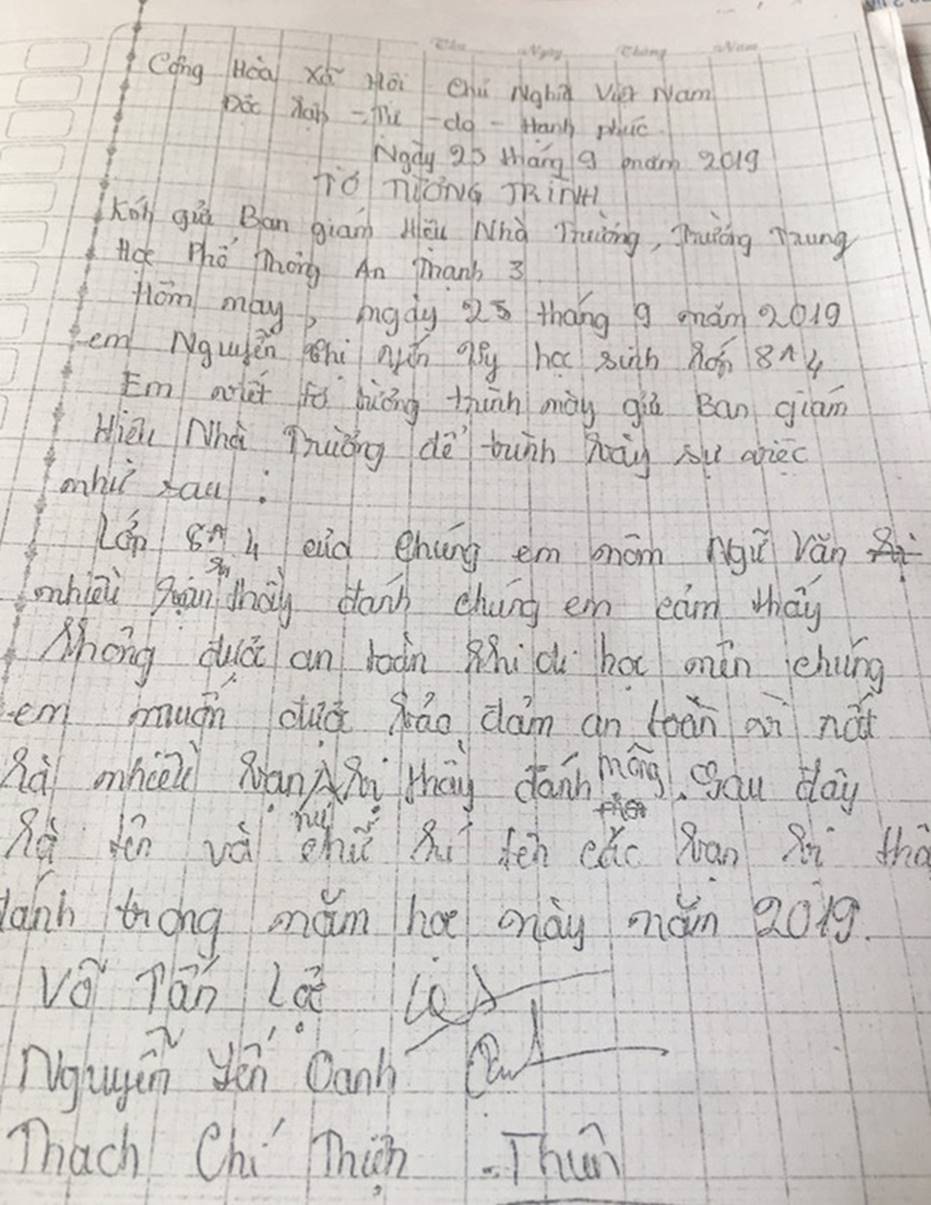 Thứ Ngày Tháng Năm
Cộng Hòa Xã Hôi Chủ Nghĩa Việt Nam
Độc lập - Tư - do - Hanh phúc
Ngày 25 tháng 9 năm 2019
TỜ TƯỜNG TRÌNH
Kính gửi Ban giám Hiêu Nhà Trường, Trường Trung
Học Phổ Thông An Thạnh 3
Hôm nay, ngày 25 tháng 9 năm 2019
em Nguyễn Thi học sinh lớp 8A4
Em viết tờ tường trình này gửi Ban giám
Hiệu Nhà Trường để trình bày sự việc
như sau :
Lớp 8A4 của chúng em môn Ngữ Văn
nhiều bạn bị thầy đánh chúng em cảm thấy
không được an toàn khi đi học nên chúng
em muốn được bảo đảm an toàn vì rất
là nhiều bạn bị thầy đánh mông. Sau đây
là tên và chữ kí tên các bạn bị thầ
đánh trong năm học này năm 2019.
Võ Tấn Lộc
Nguyễn Yến Oanh
Thach Chí Thiện Thiện